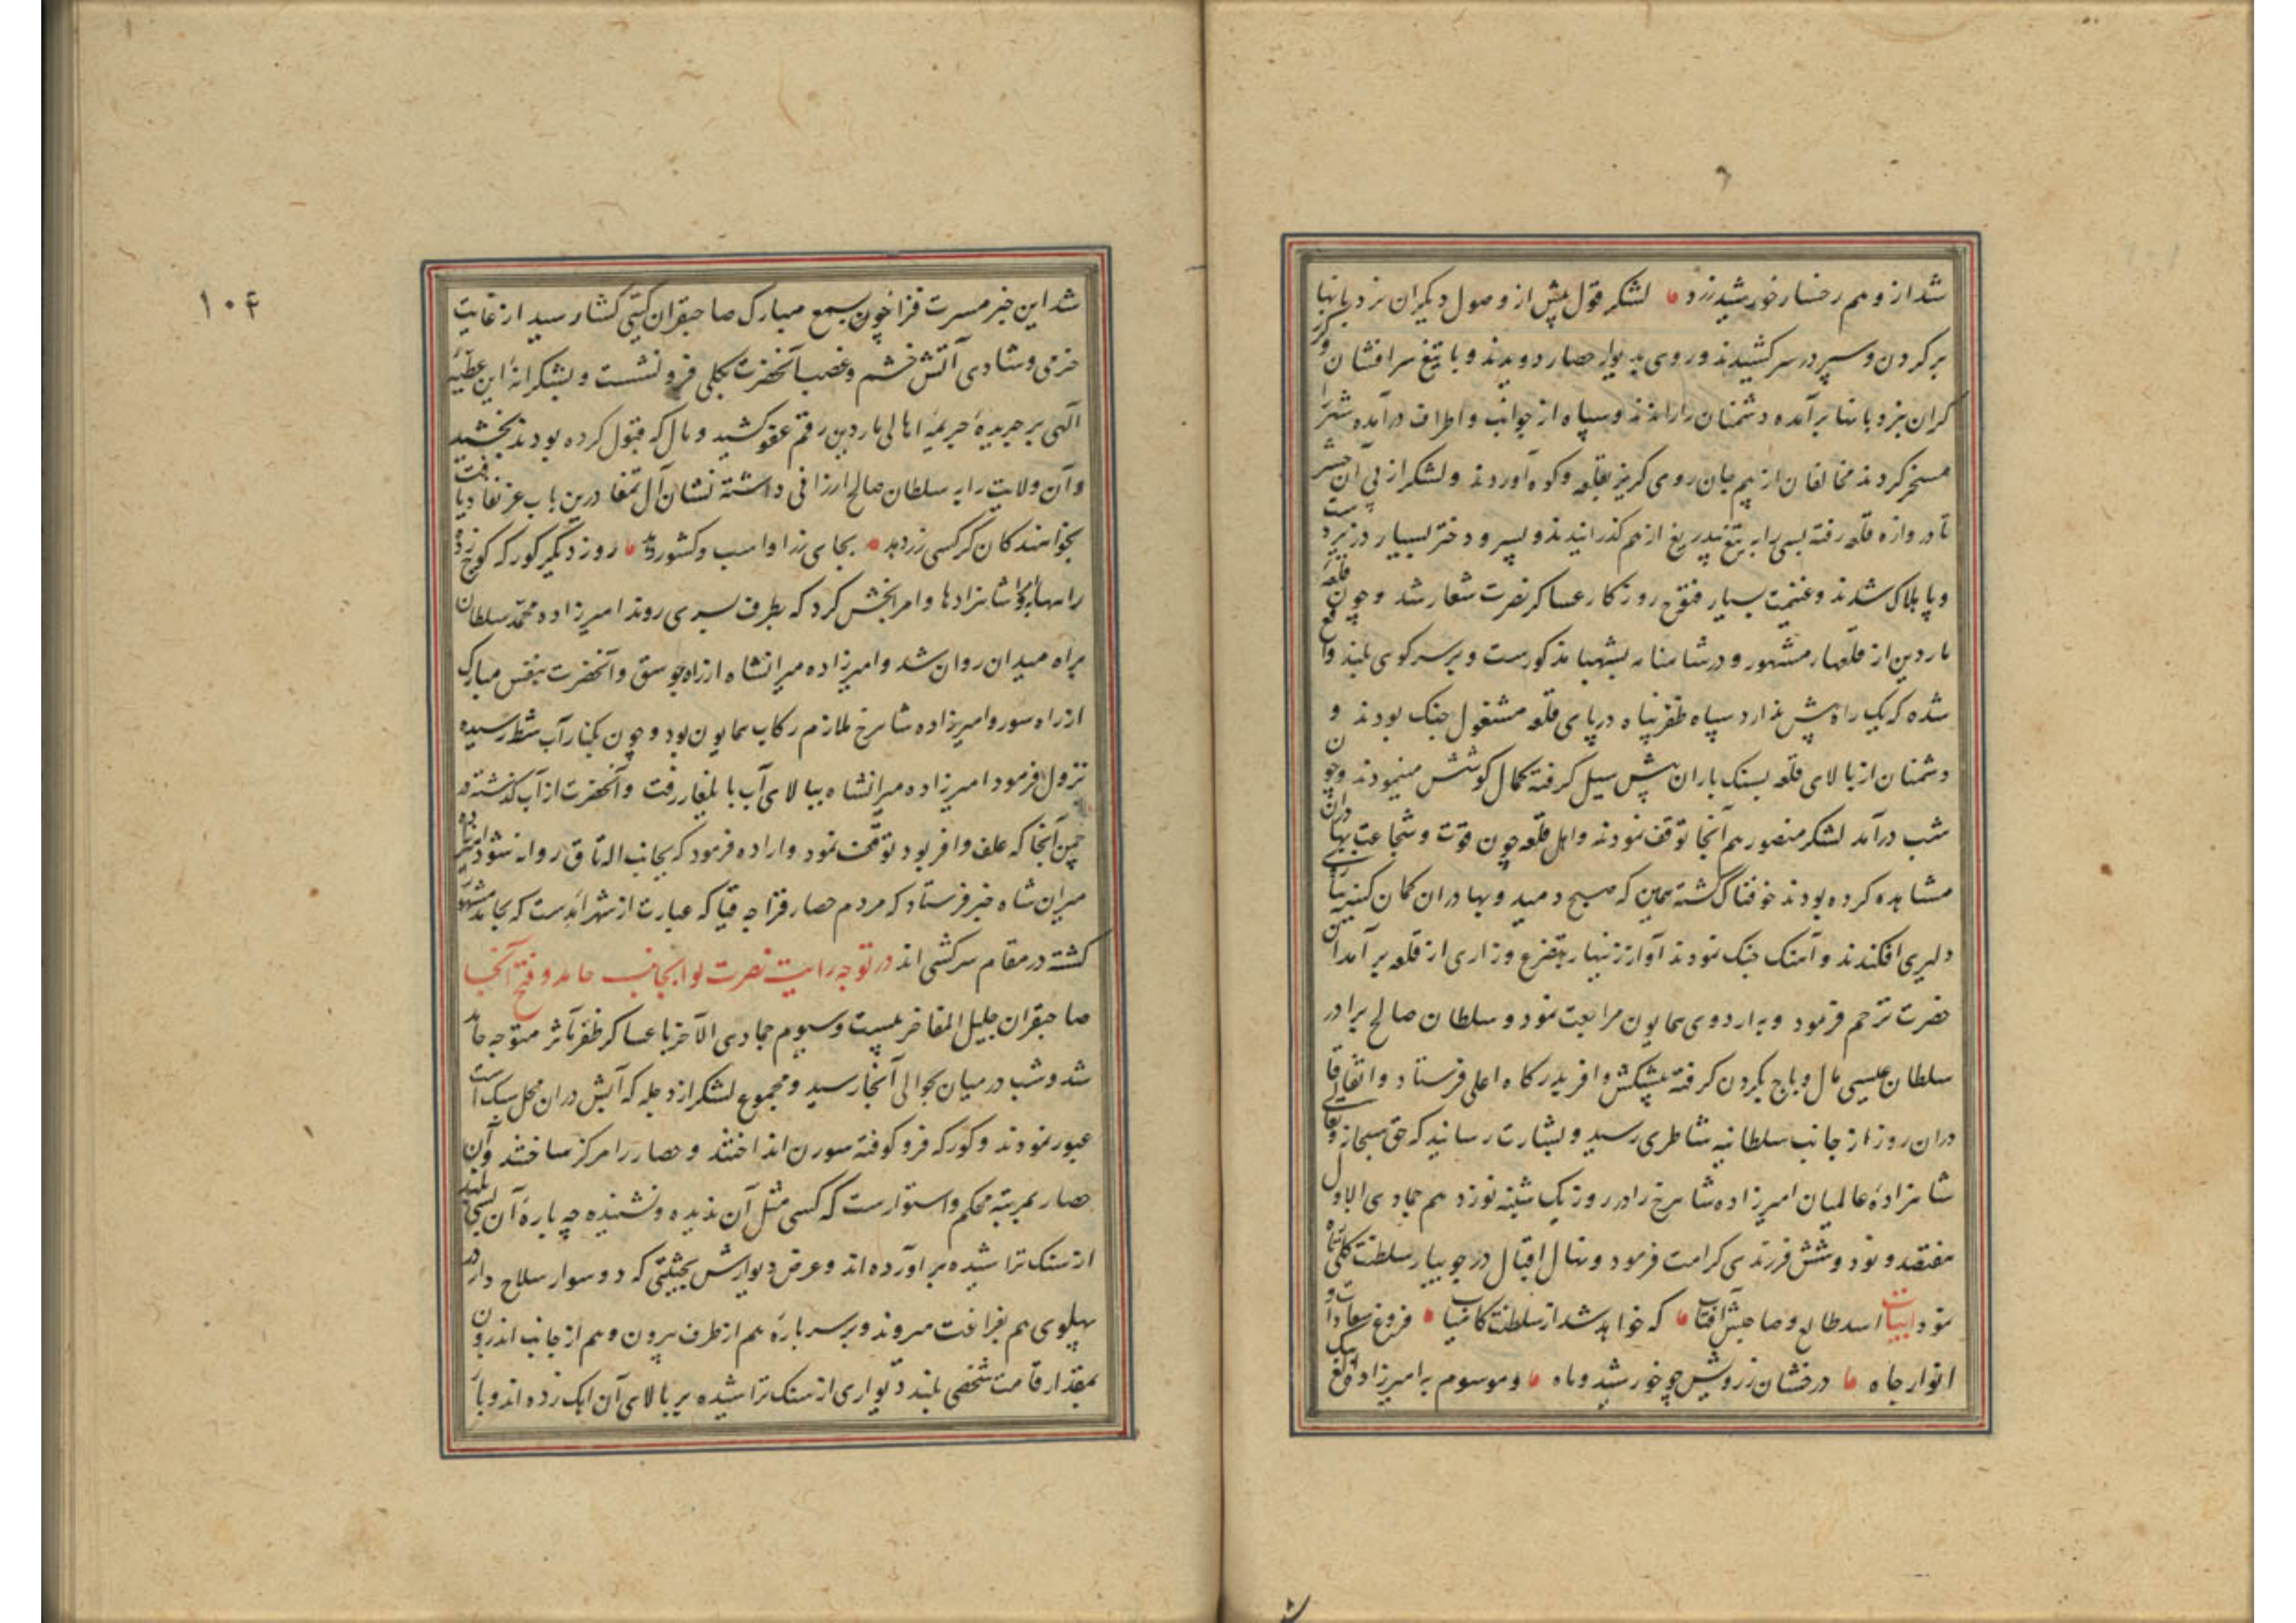 شد از وهم رخسار خورشید زرد لشکر قول پیش از وصول دیگران نردبانها
بر کردن و سپر در سر کشیدند و روی بدیوار حصار دویدند و با تیغ سر افشان و کرز
کران بنردبانها برآمده دشمنان را راندند و سپاه از جوانب و اطراف درآمده شهر را
مسخر کردند مخالفان از بیم جان روی کریز بقلعه و کوه آوردند و لشکر از پی آن حشر
تا دروازه قلعه رفته بسی را به تیغ بیدریغ از هم کذرانیدند و پسر و دختر بسیار در زیر دست
و پا هلاک شدند و غنیمت بسیار فتوح روزکار عساکر نصرت شعار شد و چون قلعه
ماردین از قلعهاء مشهور و در شاهنامه بشهبا مذکورست و بر سر کوهی بلند واقع
شده که یک راه پیش ندارد سپاه ظفرپناه در پای قلعه مشغول جنک بودند و
دشمنان از بالای قلعه بسنک باران پیش سیل کرفته کمال کوشش مینمودند و چون
شب درآمد لشکر منصور هم آنجا توقف نمودند و اهل قلعه چون قوت و شجاعت بهادران
مشاهده کرده بودند خوفناک کشته همین که صبح دمید و بهادران کمان کین بر بازوی
دلیری افکندند و آهنک جنک نمودند آواز زنهار بتضرع و زاری از قلعه برآمد آن
حضرت ترحم فرمود و به اردوی همایون مراجعت نمود و سلطان صالح برادر
سلطان عیسی مال و باج بکردن کرفته پیشکش وافر بدرکاه اعلی فرستاد و اتفاقا
دران روز از جانب سلطانیه شاطری رسید و بشارت رسانید که حق سبحانه و تعالی
شاهزاده عالمیان امیرزاده شاهرخ را در روز یک شنبه نوزدهم جمادی الاول
هفتصد و نود و شش فرزندی کرامت فرمود و نهال اقبال در جویبار سلطنت
نمود ابیات اسد طالع و صاحبش آفتاب که خواهد شد از سلطنت کامیاب فروغ سعادات و
انوار جاه درخشان ز رویش چو خورشید و ماه و موسوم به امیرزاده الغ بیک
شد این خبر مسرت فزا چون بسمع مبارک صاحبقران کیتی کشا رسید از غایت
خرمی و شادی آتش خشم و غضب آنحضرت بکلی فرو نشست و بشکرانه این عطیه
الهی بر جریده جریمه اهالی ماردین رقم عفو کشید و مال که قبول کرده بودند بخشید
و آن ولایت را به سلطان صالح ارزانی داشته نشان آل تمغا درین باب عز نفاذ یافت
بخواهندکان کر کسی زر دهد بجای زر او اسب و کشور دهد روز دیگر کورکه کوچ زده
راهها را بر شاهزادها و امرا بخش کرد که بطرف بسری روند امیرزاده محمد سلطان
براه میدان روان شد و امیرزاده میرانشاه از راه جوسق و آنحضرت بنفس مبارک
از راه سور و امیرزاده شاهرخ ملازم رکاب همایون بود و چون بکنار آب شط رسیده
نزول فرمود امیرزاده میرانشاه ببالای آب بایلغار رفت و آنحضرت از آب کذشته در
چمن آنجا که علف وافر بود توقف نمود و اراده فرمود که بجانب اله تاق روانه شود امیرزاده
میران شاه خبر فرستاد که مردم حصار قراجه قیا که عبارت از شهر آمدست که بحامد مشهور
کشته در مقام سرکشی اند در توجه رایت نصرت لوا بجانب حامد و فتح آنجا
صاحبقران جلیل المفاخر بیست و سیوم جمادی الآخر با عساکر ظفر مآثر متوجه حامد
شد و شب در میان بحوالی آنجا رسید و مجموع لشکر از دجله که آبش دران محل سبک است
عبور نمودند و کورکه فرو کوفته سورن انداختند و حصار را مرکز ساختند و آن
حصار بمرتبه محکم و استوارست که کسی مثل آن ندیده و نشنیده چه باره آن بسی بلند
از سنک تراشیده برآورده اند و عرض دیوارش بحیثیتی که دو سوار سلاح دار در
پهلوی هم بفراغت میروند و بر سر باره هم از طرف بیرون و هم از جانب اندرون
بمقدار قامت شخصی بلند دیواری از سنک تراشیده بر بالای آن اهک زده اند و با
۱۰۴